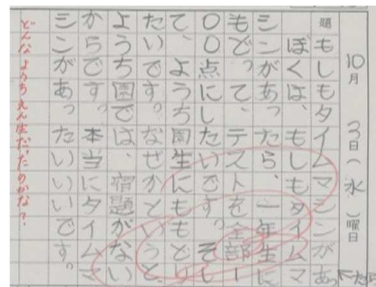 10月 3日(水)曜日
題 もしもタイムマシンがあったら
ぼくは、もしもタイムマ
シンがあったら、一年生に
もどって、テストを全部一
〇〇点にしたいです。そし
て、ようち園生にもどり
たいです。なぜかというと、
ようち園では、宿題がない
からです。本当にタイムマ
シンがあったいいいです。
どんなようちえん生だったのかな？